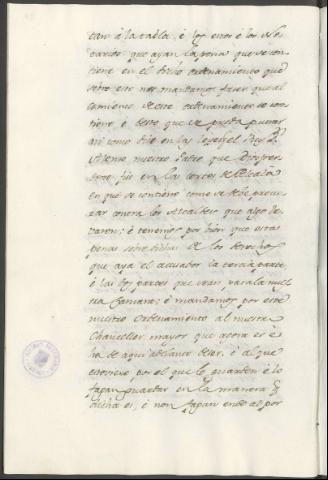 tan à la tabla, è los otros è los No-
tarios que ayan la pena que se con-
tiene en el dicho ordenamiento que
sobre esto nos mandamos facer qual
comienzo de este ordenamiento se con-
tiene, è desto que se pueda provar
asi como dijo en las leyes que el Rey D.n
Alonso nuestro Padre que Dios per-
done fizo en las cortes de Alcalà
en que se contiene como se debe prove-
zar contra los Alcaldes que algo to-
zaren: è tenemos por bien que estas
penas sobre dichas de los derechos
que aya el acusador la tercia parte,
è las dos partes que sean para la nues-
tra Camara: è mandamos por este
nuestro Ordenamiento al nuestro
Chanciller mayor que agora es è
ha de aqui adelante sezar, è al que
estoviere por el que lo guarden è lo
fagan guardar en la manera q.
dicha es, è non fagan ende al por